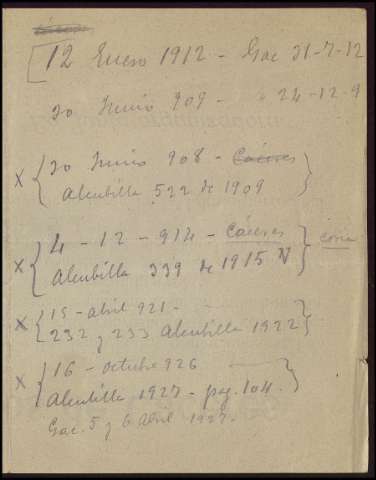 12 Enero 1912 - Gac 21-7-12
20 Junio 909 - " 24-12-9
x 20 Junio 908 - Cáceres
Alcubilla 522 de 1909
x 4 - 12 - 914 - Cáceres Coria
Alcubilla 339 de 1915 N
x 15 - abril 921 -
232 y 233 Alcubilla 1922
x 16 - octubre 926
Alcubilla 1927 - pag. 104.
Gac. 5 y 6 Abril 1927.